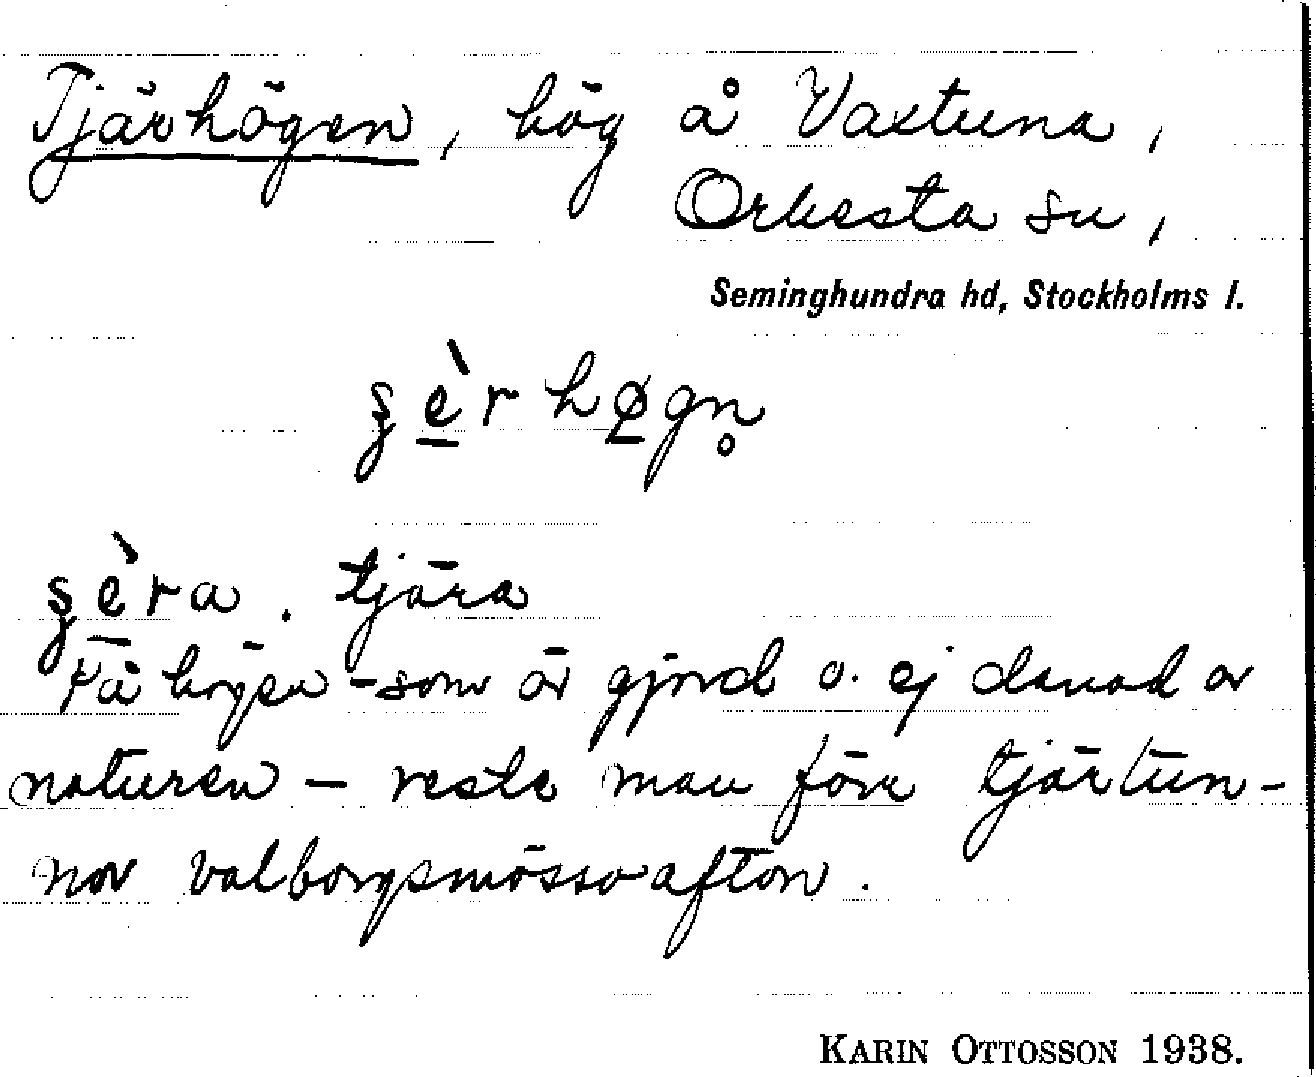 Tjärhögen, hög å Vaxtuna,
Orkesta sn,
Seminghundra hd, Stockholms l.
ʂè̲rhø̲gn̥
ʂè̲ra. tjära
På högen – som är gjord o. ej danad av
naturen – reste man förr tjärtun-
nor valborgsmässoafton.
KARIN OTTOSSON 1938.